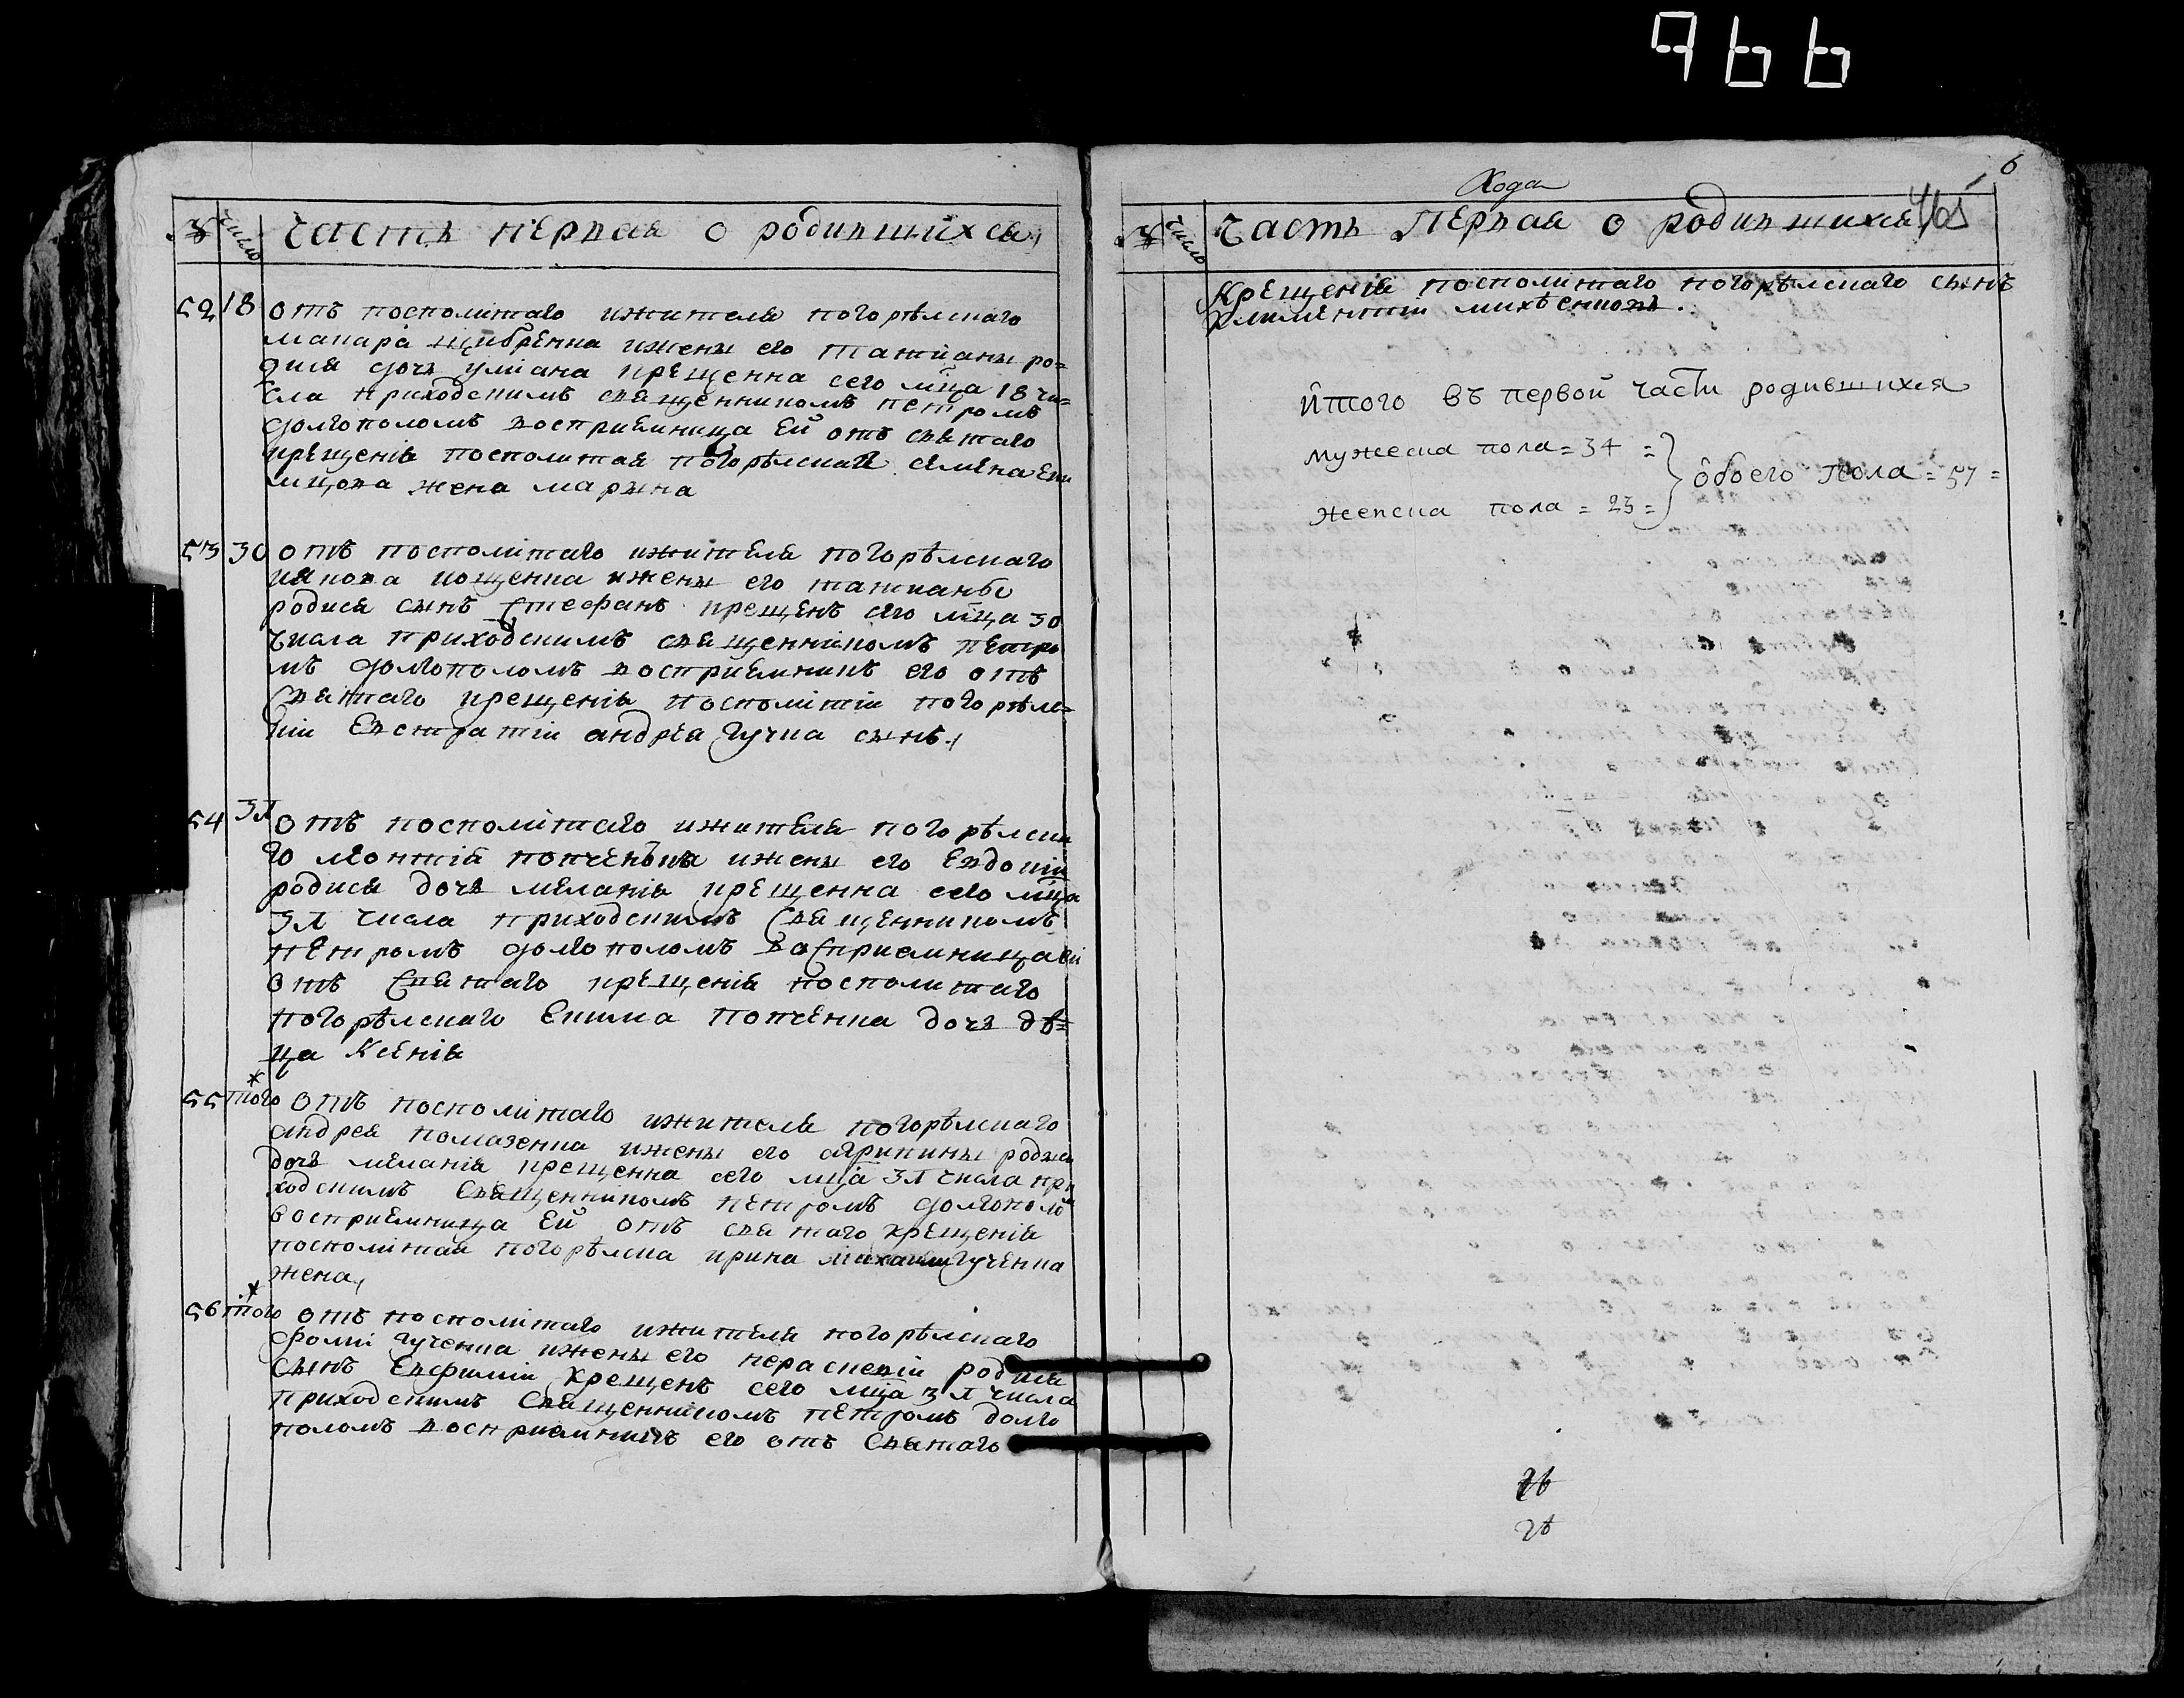 966
№ число Часть первая о родившихся
52 18 отъ посполитаго и жителя погорѣлскаго
макара щибренка и жены его татианы ро=
дися дочъ улиана крещенна сего мца 18 чи=
сла приходскимъ священникомъ петромъ
долгополомъ восприемница ей отъ святаго
крещенія посполитая погорѣлская семена
жена марина
53 30 отъ посполітаго и жителя погорѣлскаго
іощенка и жены его татианы
родися сынъ Стефанъ крещенъ сего мца 30
числа приходскимъ священнікомъ петро
мъ долгополомъ восприемникъ его отъ
святаго крещенія посполітій погорѣлс=
кій Евстратій андрія гучка сынъ
54 3л отъ посполітаго и жителя погорѣлска
го леонтія попченка и жены его Евдокіи
родися дочъ меланія крещенна сего мца
3л числа приходскимъ священникомъ
петромъ долгополомъ восприемница ей
отъ святаго крещенія посполитаго
погорѣлскаго Екима попченка дочъ дѣ=
ца Ксенія
55 того отъ посполітаго и жителя погорѣлскаго
андрея помазенка и жены его агрипины родися
дочъ меланія крещенна сего мца 3л числа при
ходскимъ священнікомъ петромъ долгополо
восприемница ей отъ святаго крещенія
посполітая погорѣлска ирина гученка
жена
56 того отъ посполітаго и жителя погорѣлскаго
фомы гученка и жены его параскевіи родися
сынъ Евфимій крещенъ сего мца 3л числа
приходскимъ священнікомъ петромъ долго
поломъ восприемникъ его отъ святаго
6
Хода
465
№ число Часть Первая о родившихся
Крещенія посполитаго погорѣлскаго сынъ
климентій
Итого въ первой части родившихся
мужеска пола = 34 =
обоего Пола = 57 =
женска пола = 23 =
26
26